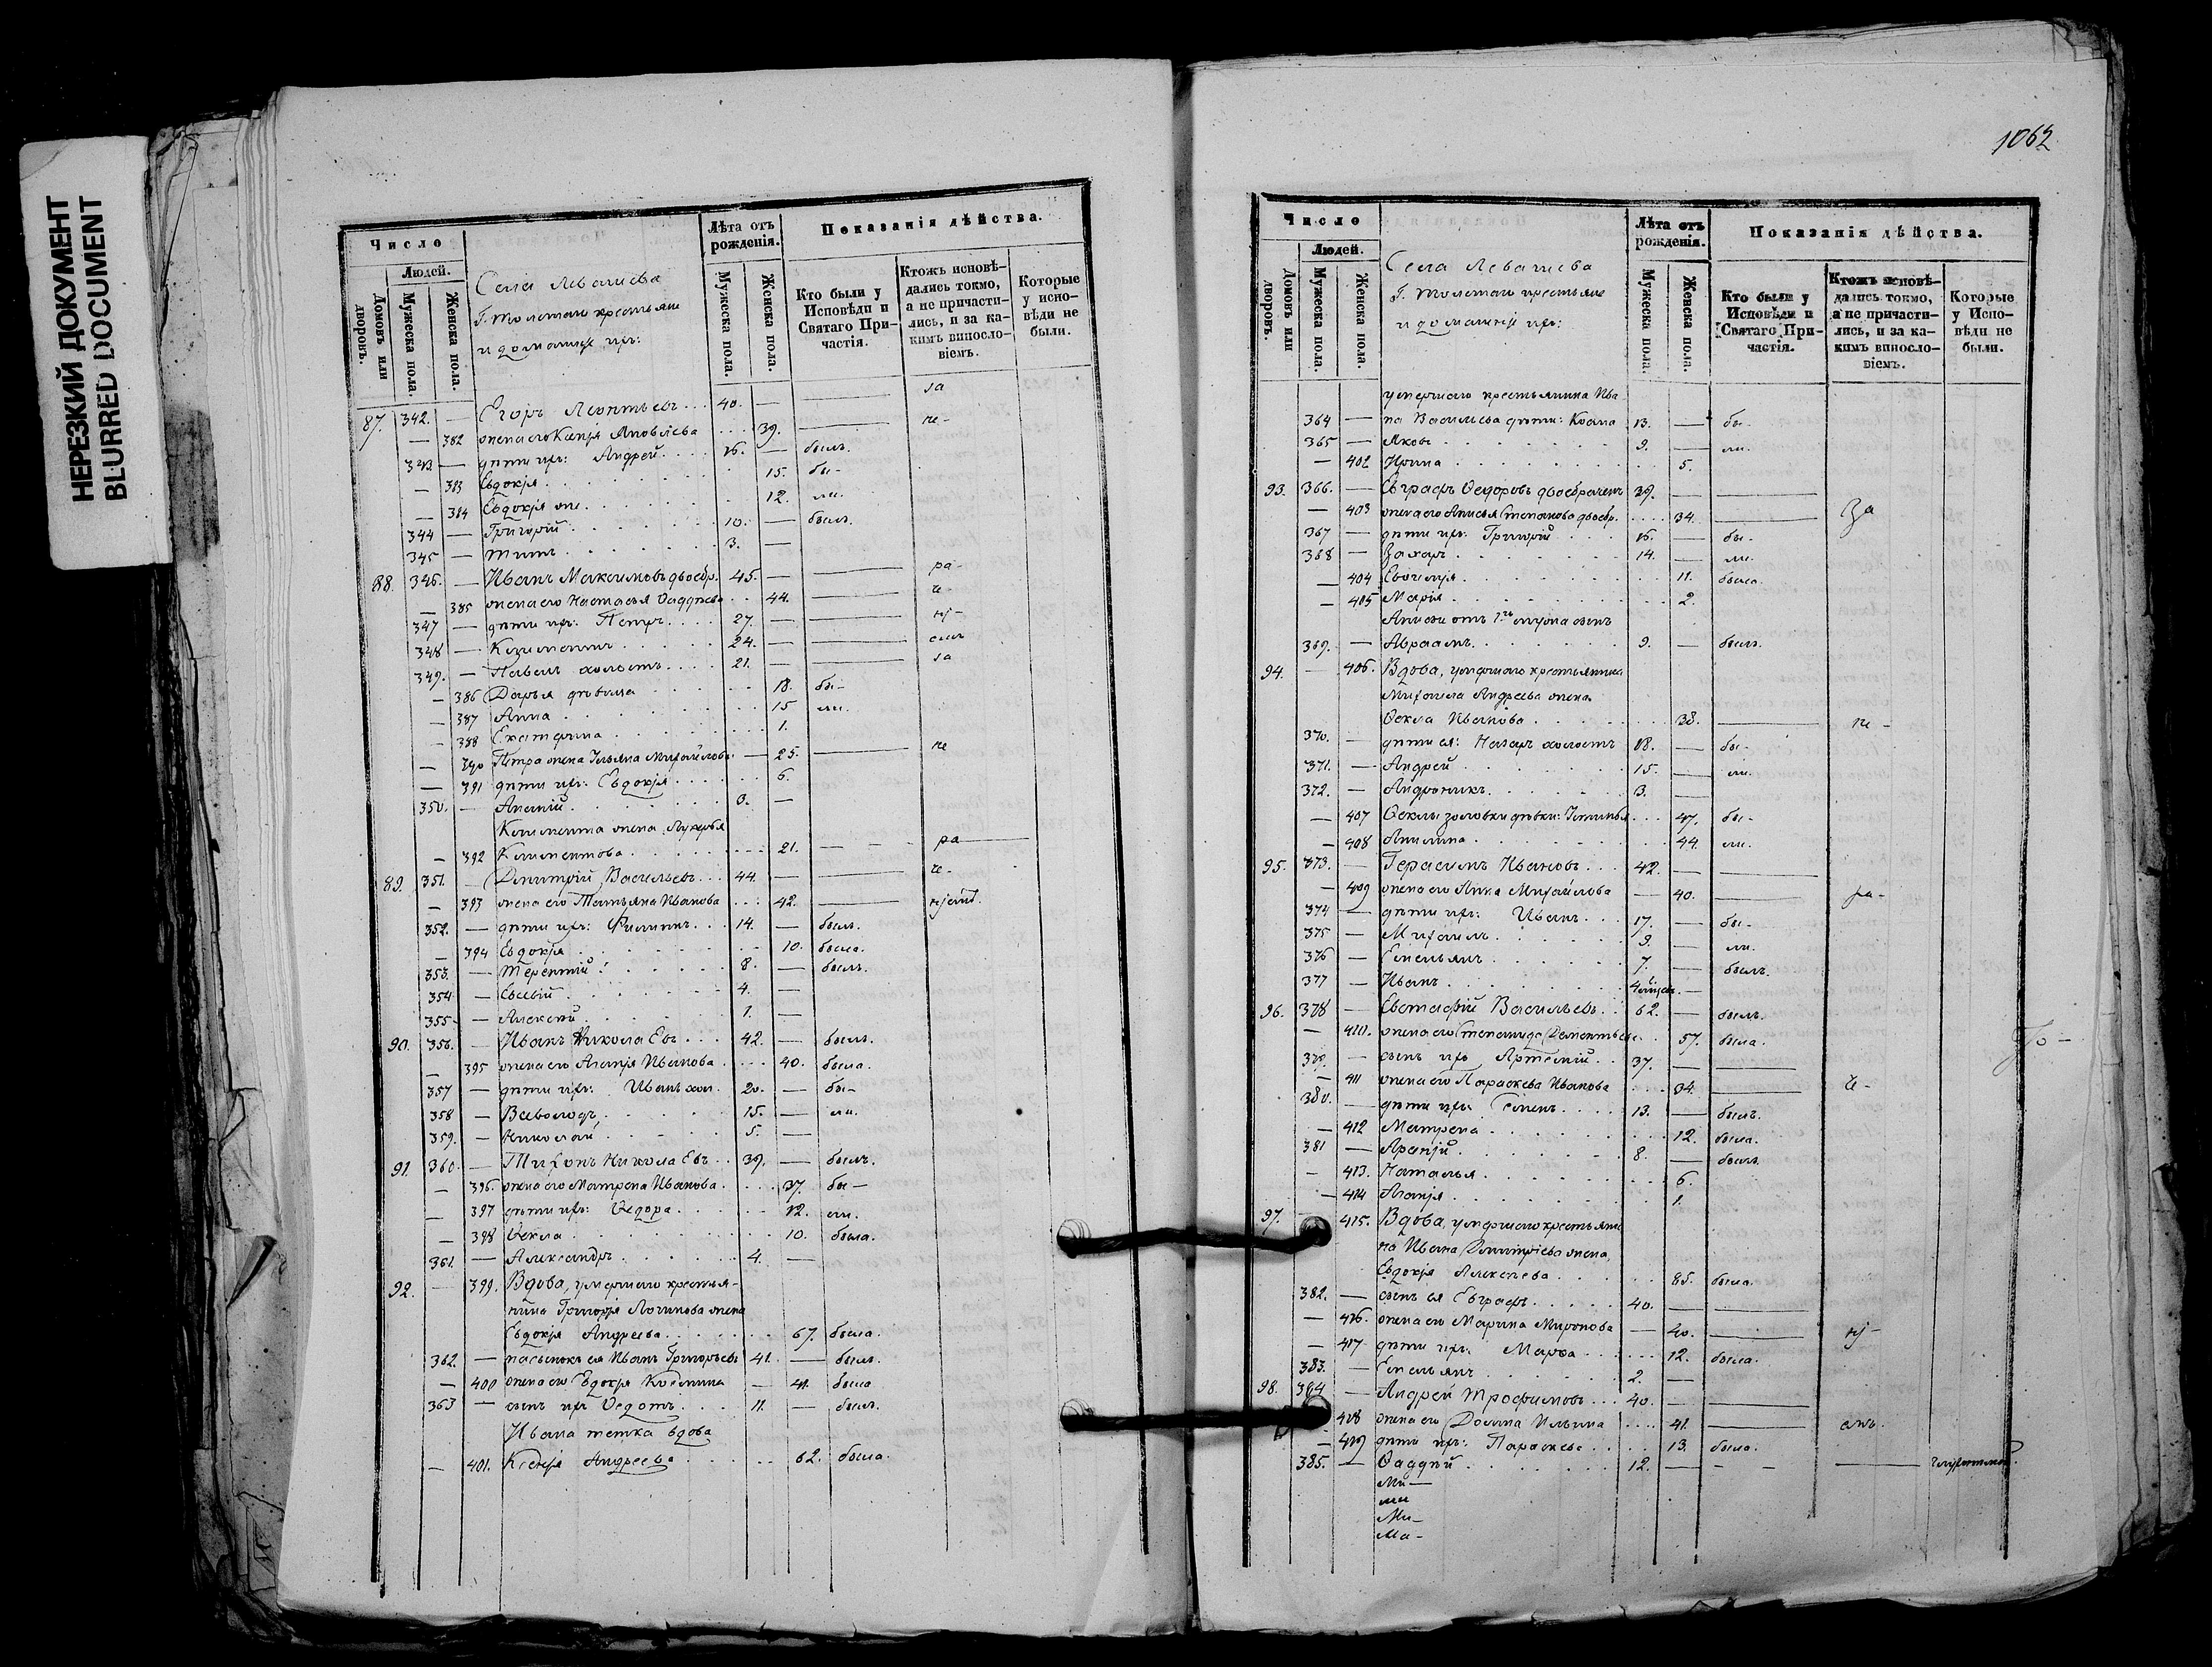 НЕРЕЗКИЙ ДОКУМЕНТ
BLURRED DOCUMENT
Число
Людей.
Домовъ или дворовъ.
Мужеска пола.
Женска пола.
Села Левашева
Г. Толстаго крестьяне
и домашніе ихъ:
Лѣта отъ рожденія.
Мужеска пола.
Женска пола.
Показанія дѣйства.
Кто были у Исповѣди и Святаго Причастія.
Ктожъ исповѣдались токмо, а не причастились, и за какимъ винословіемъ.
Которые у исповѣди не были.
87. 342. — Егоръ Леонтьевъ 40. — за
— 382 жена его Ксенія Яковлева 39. не-
343 — дѣти ихъ: Андрей 16. — былъ.
— 383 Евдокія 15. бы-
— 384 Евдокія 12. ли.
344 — Григорій 10. — былъ.
345 — Титъ 3. —
88. 346. — Иванъ Максимовъ двоебр. 45. — ра-
— 385 жена его Настасья Фаддѣева 44.
347 — дѣти ихъ: Петръ 27. —
348 — Климентъ 24. —
349. — Павелъ холостъ 21. — за
— 386 Дарья дѣвица 18. бы-
— 387 Анна 15 ли.
— 388 Екатерина 1.
— 390 Петра жена Ульяна Михайлова — 25. не
— 391 дѣти ихъ: Евдокія 6.
350. — Ананій 3. —
Климента жена Лукерья
— 392 Климентова 21. — ра
89. 351. — Димитрій Васильевъ 44. —
— 393 жена его Татьяна Иванова 42.
352. — дѣти ихъ: Филиппъ 14. — былъ.
— 394 Евдокія 10. была.
353. — Терентій 8. — былъ.
354 — Евсевій 4. —
355 — Алексѣй 1. —
90. 356. — Иванъ Николаевъ 42. — былъ.
— 395 жена его Агапія Иванова 40. была.
357 — дѣти ихъ: Иванъ хол. 20. — бы-
358 — Всеволодъ 15. — ли.
359. — Николай 5. —
91. 360. — Тихонъ Николаевъ 39. — былъ.
— 396. жена его Матрена Иванова 37. бы-
— 397 дѣти ихъ: Ѳедора 12. ли.
— 398 Ѳекла 10. была.
361. — Александръ 4. —
92. — 399. Вдова, умершаго крестья-
нина Григорія Логинова жена
Евдокія Андреева 67. была.
362. — пасынокъ ея Иванъ Григорьевъ 41. — былъ.
— 400 жена его Евдокія Козмина — 41. была
363 — сынъ ихъ Ѳедотъ 11. — былъ.
Ивана тетка вдова
— 401. Ксенія Андреева 62. была.
1062
Число
Людей.
Домовъ или дворовъ.
Мужеска пола.
Женска пола.
Села Левашева
Г. Толстаго крестьяне
и домашніе ихъ:
Лѣта отъ рожденія.
Мужеска пола.
Женска пола.
Показанія дѣйства.
Кто были у Исповѣди и Святаго Причастія.
Ктожъ исповѣдались токмо, а не причастились, и за какимъ винословіемъ.
Которые у Исповѣди не были.
умершаго крестьянина Ива-
364 — на Васильева дѣти: Козма 13. — бы-
365 — Яковъ 9. — ли.
— 402 Ирина 5.
93. 366. — Евграфъ Ѳедоровъ двоебраченъ 39. —
— 403 жена его Анисья Степанова двоебр. 34. За
367 — дѣти ихъ: Григорій 16. — бы-
368 — Захаръ 14. — ли.
— 404 Евфимія 11. была.
— 405 Марія 2.
Анисьи отъ 1го мужа сынъ
369. — Авраамъ 9. — былъ.
94. — 406. Вдова, умершаго крестьянина
Михаила Андреева жена
Ѳекла Иванова 38. не-
370. — дѣти ея: Назаръ холостъ 18. — бы-
371. — Андрей 15. — ли.
372. — Андроникъ 3. —
— 407 Ѳеклы золовки дѣвки: Устинья 47. бы-
— 408 Акилина 44. ли.
95. 373. — Герасимъ Ивановъ 42. —
— 409 жена его Анна Михайлова — 40. ра-
374 — дѣти ихъ: Иванъ 17. — бы-
375 — Михаилъ 9. — ли.
376 — Емельянъ 7. — былъ.
377 — Иванъ —
96. 378 — Евстафій Васильевъ 62. — былъ.
— 410. жена его Степанида Дементьева 57. была.
379. — сынъ ихъ Артемій 37. —
— 411 жена его Параскева Иванова 34.
380. — дѣти ихъ 13. — былъ.
— 412 Матрена 12. была.
381 — 8. — былъ.
— 413. Наталья 6.
— 414 Агапія 1.
97. — 415. Вдова, умершаго крестьяни
на Ивана Димитріева жена,
Евдокія Алексѣева 85. была.
382. — сынъ ея Евграфъ 40. —
— 416. жена его Марина Миронова — 40.
— 417 дѣти ихъ: Марѳа 12. была.
383. — Емельянъ 2. —
98. 384 — Андрей Трофимовъ 40. —
— 418 жена его Домна Ильина 41.
— 419 дѣти ихъ: Параскева 13. была.
385. — Фаддей 12. —